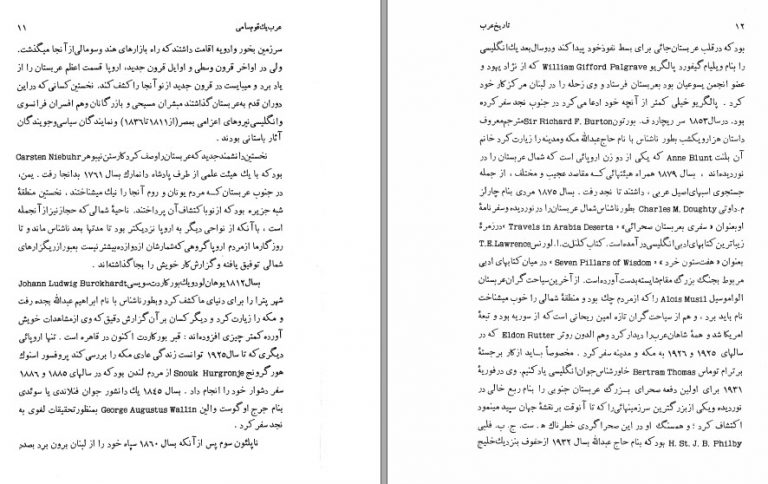 عرب یك قوم سامی ۱۱
سرزمین بخور وادویه اقامت داشتند که راه بازارهای هند وسومالی از آنجا میگذشت.
ولی در اواخر قرون وسطی و اوایل قرون جدید، اروپا قسمت اعظم عربستان را از
یاد برد و میبایست در قرون جدید از نو آنجا را کشف کند. نخستین کسانی که در این
دوران قدم به عربستان گذاشتند مبشران مسیحی و بازرگانان وهم افسران فرانسوی
وانگلیسی نیروهای اعزامی بمصر (از ۱۸۱۱ تا ۱۸۳۶) و نمایندگان سیاسی وجویندگان
آثار باستانی بودند .
نخستین دانشمند جدید که عربستان را وصف کرد کارستن نیبوهر Carsten Niebuhr
بود که با یك هیئت علمی از طرف پادشاه دانمارك بسال ۱۷۶۱ بدانجا رفت . یمن،
در جنوب عربستان کــه مردم یونان و روم آنجا را نیك میشناختند، نخستین منطقهٔ
شبه جزیره بود که از نو با کتشاف آن پرداختند. ناحیهٔ شمالی که حجاز نیز از آنجمله
است ، با آنکه از نواحی دیگر به اروپا نزدیکتر بود تا مدتها بعد ناشناس ماند و تا
روزگار ما از مردم اروپا گروهی که شمارشان از دوازده بیشتر نیست بعبور از ریگزارهای
شمالی توفیق یافته و گزارش کار خویش را بجا گذاشته اند .
بسال ۱۸۱۲ یوهان لودویك بورکهاردت سویسی Johann Ludwig Burckhardt
شهر پترا را برای دنیای ما کشف کرد و بطور ناشناس با نام ابراهیم عبدالله بجده رفت
و مکه را زیارت کرد و دیگر کسان بر آن گزارش دقیق که وی از مشاهدات خویش
آورده کمتر چیزی افزوده اند ؛ قبر بورکاردت اکنون در قاهره است . تنها اروپائی
دیگری که تا سال ۱۹۲۵ توانست زندگی عادی مکه را بررسی کند پروفسور اسنوك
هورگرونج Snouk Hurgronje از مردم لندن بود که در سالهای ۱۸۸۵ و ۱۸۸۶
سفر دشوار خود را انجام داد . بسال ۱۸۴۵ یك دانشور جوان فنلاندی یا سوئدی
بنام جرج اوگوست والین George Augustus Wallin بمنظور تحقیقات لغوی به
نجد سفر کرد .
ناپلئون سوم پس از آنکه بسال ۱۸۶۰ سپاه خود را از لبنان برون برد بصدر
۱۲ تاریخ عرب
بود که در قلب عربستان جائی برای بسط نفوذ خود پیدا کند ودوسال بعد یك انگلیسی
را بنام ویلیام گیفورد پالگریو William Gifford Palgrave که از نژاد یهود و
عضو انجمن یسوعیان بود بعربستان فرستاد و وی زحله را در لبنان مرکز کار خود
کرد . پالگریو خیلی کمتر از آنچه خود ادعا میکرد در جنوب نجد سفر کرده
بود. در سال ۱۸۵۳ سر ریچارد ف. بورتون Sir Richard F. Burton مترجم معروف
داستان هزارو یکشب بطور ناشناس با نام حاج عبدالله مکه ومدینه را زیارت کرد خانم
آن بلنت Anne Blunt که یکی از دو زن اروپائی است که شمال عربستان را در
نوردیده اند ، بسال ۱۸۷۹ همراه هیئتهائی کــه مقاصد عجیب و مختلف ، از جمله
جستجوی اسبهای اصیل عربی ، داشتند تا نجد رفت . بسال ۱۸۷۵ مردی بنام چارلز
م. داوتی Charles M. Doughty بطور ناشناس شمال عربستان را در نوردیده وسفرنامهٔ
او بعنوان « سفری بعربستان صحرائی » « Travels in Arabia Deserta » در زمرهٔ
زیباترین کتابهای ادبی انگلیسی در آمده است. کتاب کلنل ت. ا. لورنس T.E. Lawrence
بعنوان « هفت ستون خرد » « Seven Pillars of Wisdom » در میان کتابهای ادبی
مربوط بجنگ بزرگ مقام شایسته بدست آورده است. از آخرین سیاحت گران عربستان
الواموسیل Alois Musil را که از مردم چك بود و منطقهٔ شمالی را خوب میشناخت
نام باید برد ، و هم از سیاحت گران تازه امین ریحانی است که از سوریه بود و تبعهٔ
امریکا شد و همهٔ شاهان عرب را دیدار کرد وهم الدون روتر Eldon Rutter که در
سالهای ۱۹۲۵ و ۱۹۲۶ به مکه و مدینه سفر کرد . مخصوصاً باید از کار برجستهٔ
برترام توماس Bertram Thomas خاورشناس جوان انگلیسی یاد کنیم. وی در فوریهٔ
۱۹۳۱ برای اولین دفعه صحرای بــزرگ عربستان جنوبی را بنام ربع خالی در
نوردیده ویکی از بزرگترین سرزمینهائی را که تا آنوقت بر نقشهٔ جهان سپید مینمود
اکتشاف کرد ؛ و همسنگ او در این صحرا گردی خطرناك هـ . ست . ج. ب. فلبی
H. St. J. B. Philby بود که بنام حاج عبدالله بسال ۱۹۳۲ از حفوف بنزدیك خلیج